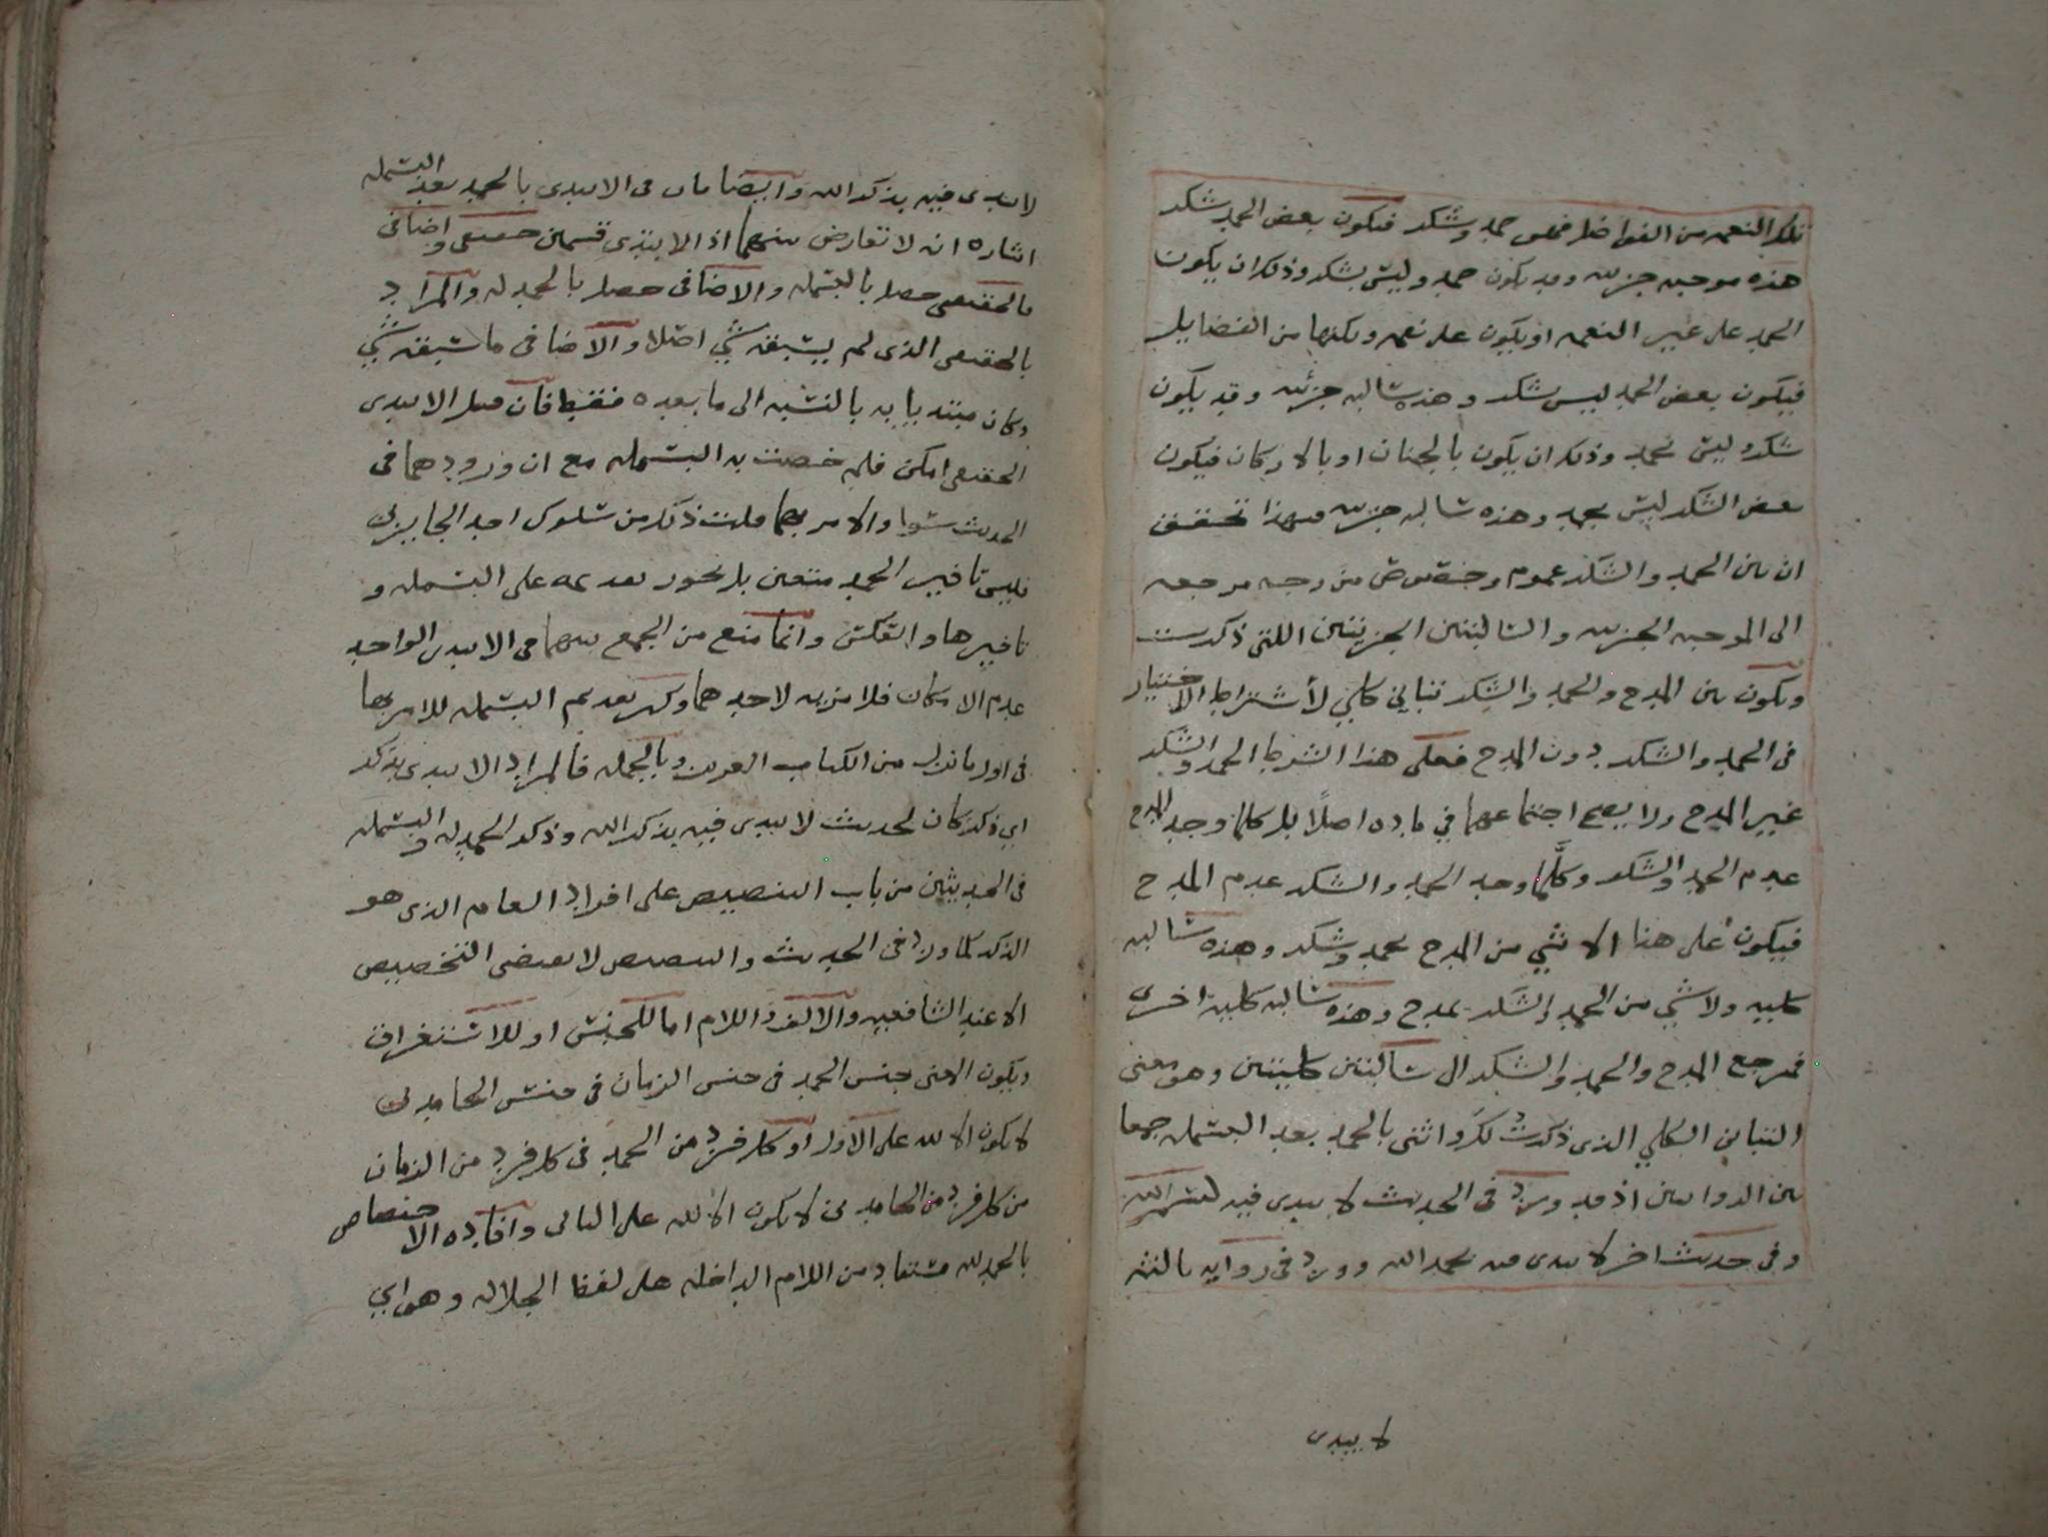 تلك النعمه من الفواضل فهي حمد وشكر فيكون بعض الحمد شكر
هذه موجبه جزييه وقد يكون حمد وليس بشكر وذلك ان يكون
الحمد على غير النعمه او يكون على نعمه ولكنها من الفضايل
فيكون بعض الحمد ليس شكر وهذه سالبه جزئيه وقد يكون
شكر وليس بحمد وذلك ان يكون بالجنان او بالاركان فيكون
بعض الشكر ليس بحمد وهذه سالبه جزييه فبهذا تحقق
ان بين الحمد والشكر عموم وخصوص من وجه مرجعه
الى الموجبه الجزييه والسالبتين الجزييتين اللتي ذكرت
ويكون بين المدح والحمد والشكر تباين كلي لأشتراط الاختيار
في الحمد والشكر دون المدح فعلى هذا الشرط الحمد والشكر
غير المدح ولا يصح اجتماعهما في ماده اصلًا بل كلما وجد المدح
عدم الحمد والشكر وكلَّما وجد الحمد والشكر عدم المدح
فيكون على هذا الا شي من المدح بحمد وشكر وهذه سالبه
كليه ولا شي من الحمد والشكر بمدح وهذه سالبه كليه اخرى
فمرجع المدح والحمد والشكر ال سالبتين كليتين وهو معنى
التباين الكلي الذي ذكرت لك واثنى بالحمد بعد البسمله جمعا
بين الروايتين اذ قد ورد في الحديث لا يبدى فيه ببسم الله
وفي حديث اخر لا يبدى فيه بحمد الله وورد في روايه بالنثه
لا يبدى
لا يبدى فيه بذكر الله وايضا فان في الابتدى بالحمد بعد البسمله
اشاره انه لا تعارض بينهما اذ الابتدى قسمين حقيقي واضافي
فالحقيقي حصل بالبسمله والاضافي حصل بالحمدله والمراد
بالحقيقي الذي لم يسبقه شي اصلا والاضافي ما سبقه شي
وكان مبتديا به بالنسبه الى ما بعده فقط فان قيل الابتدى
الحقيقي امكن فلم خصت به البسمله مع ان ورودهما في
الحديث سوا والامر بهما قلت ذلك من سلوك احد الجايزين
فليس تاخير الحمد متعين بل يجوز تقديمه على البسمله و
تاخيرها والعكس وانما منع من الجمع بينهما في الابتدى الواحد
عدم الامكان فلا مزيه لاحدهما ولكن تقديم البسمله للامر بها
في اول ما نزل من الكتاب العزيز وبالجمله فالمراد الابتدى بذكر
اي ذكر كان لحديث لا يبدى فيه بذكر الله وذكر الحمدله والبسمله
في الحديثين من باب التنصيص على افراد العام الذي هو
الذكر كما ورد في الحديث والتنصيص لا يقتضي التخصيص
الا عند الشافعيه والالف واللام اما للجنس او للاستغراق
ويكون المعنى جنس الحمد في جنس الزمان في جنس الحامدين
لا يكون الا لله على الاول او كل فرد من الحمد في كل فرد من الزمان
من كل فرد من الحامدين لا يكون الا لله على الثاني وافاده الاختصاص
بالحمد لله مستفاد من اللام الداخله على لفظ الجلاله وهو اي